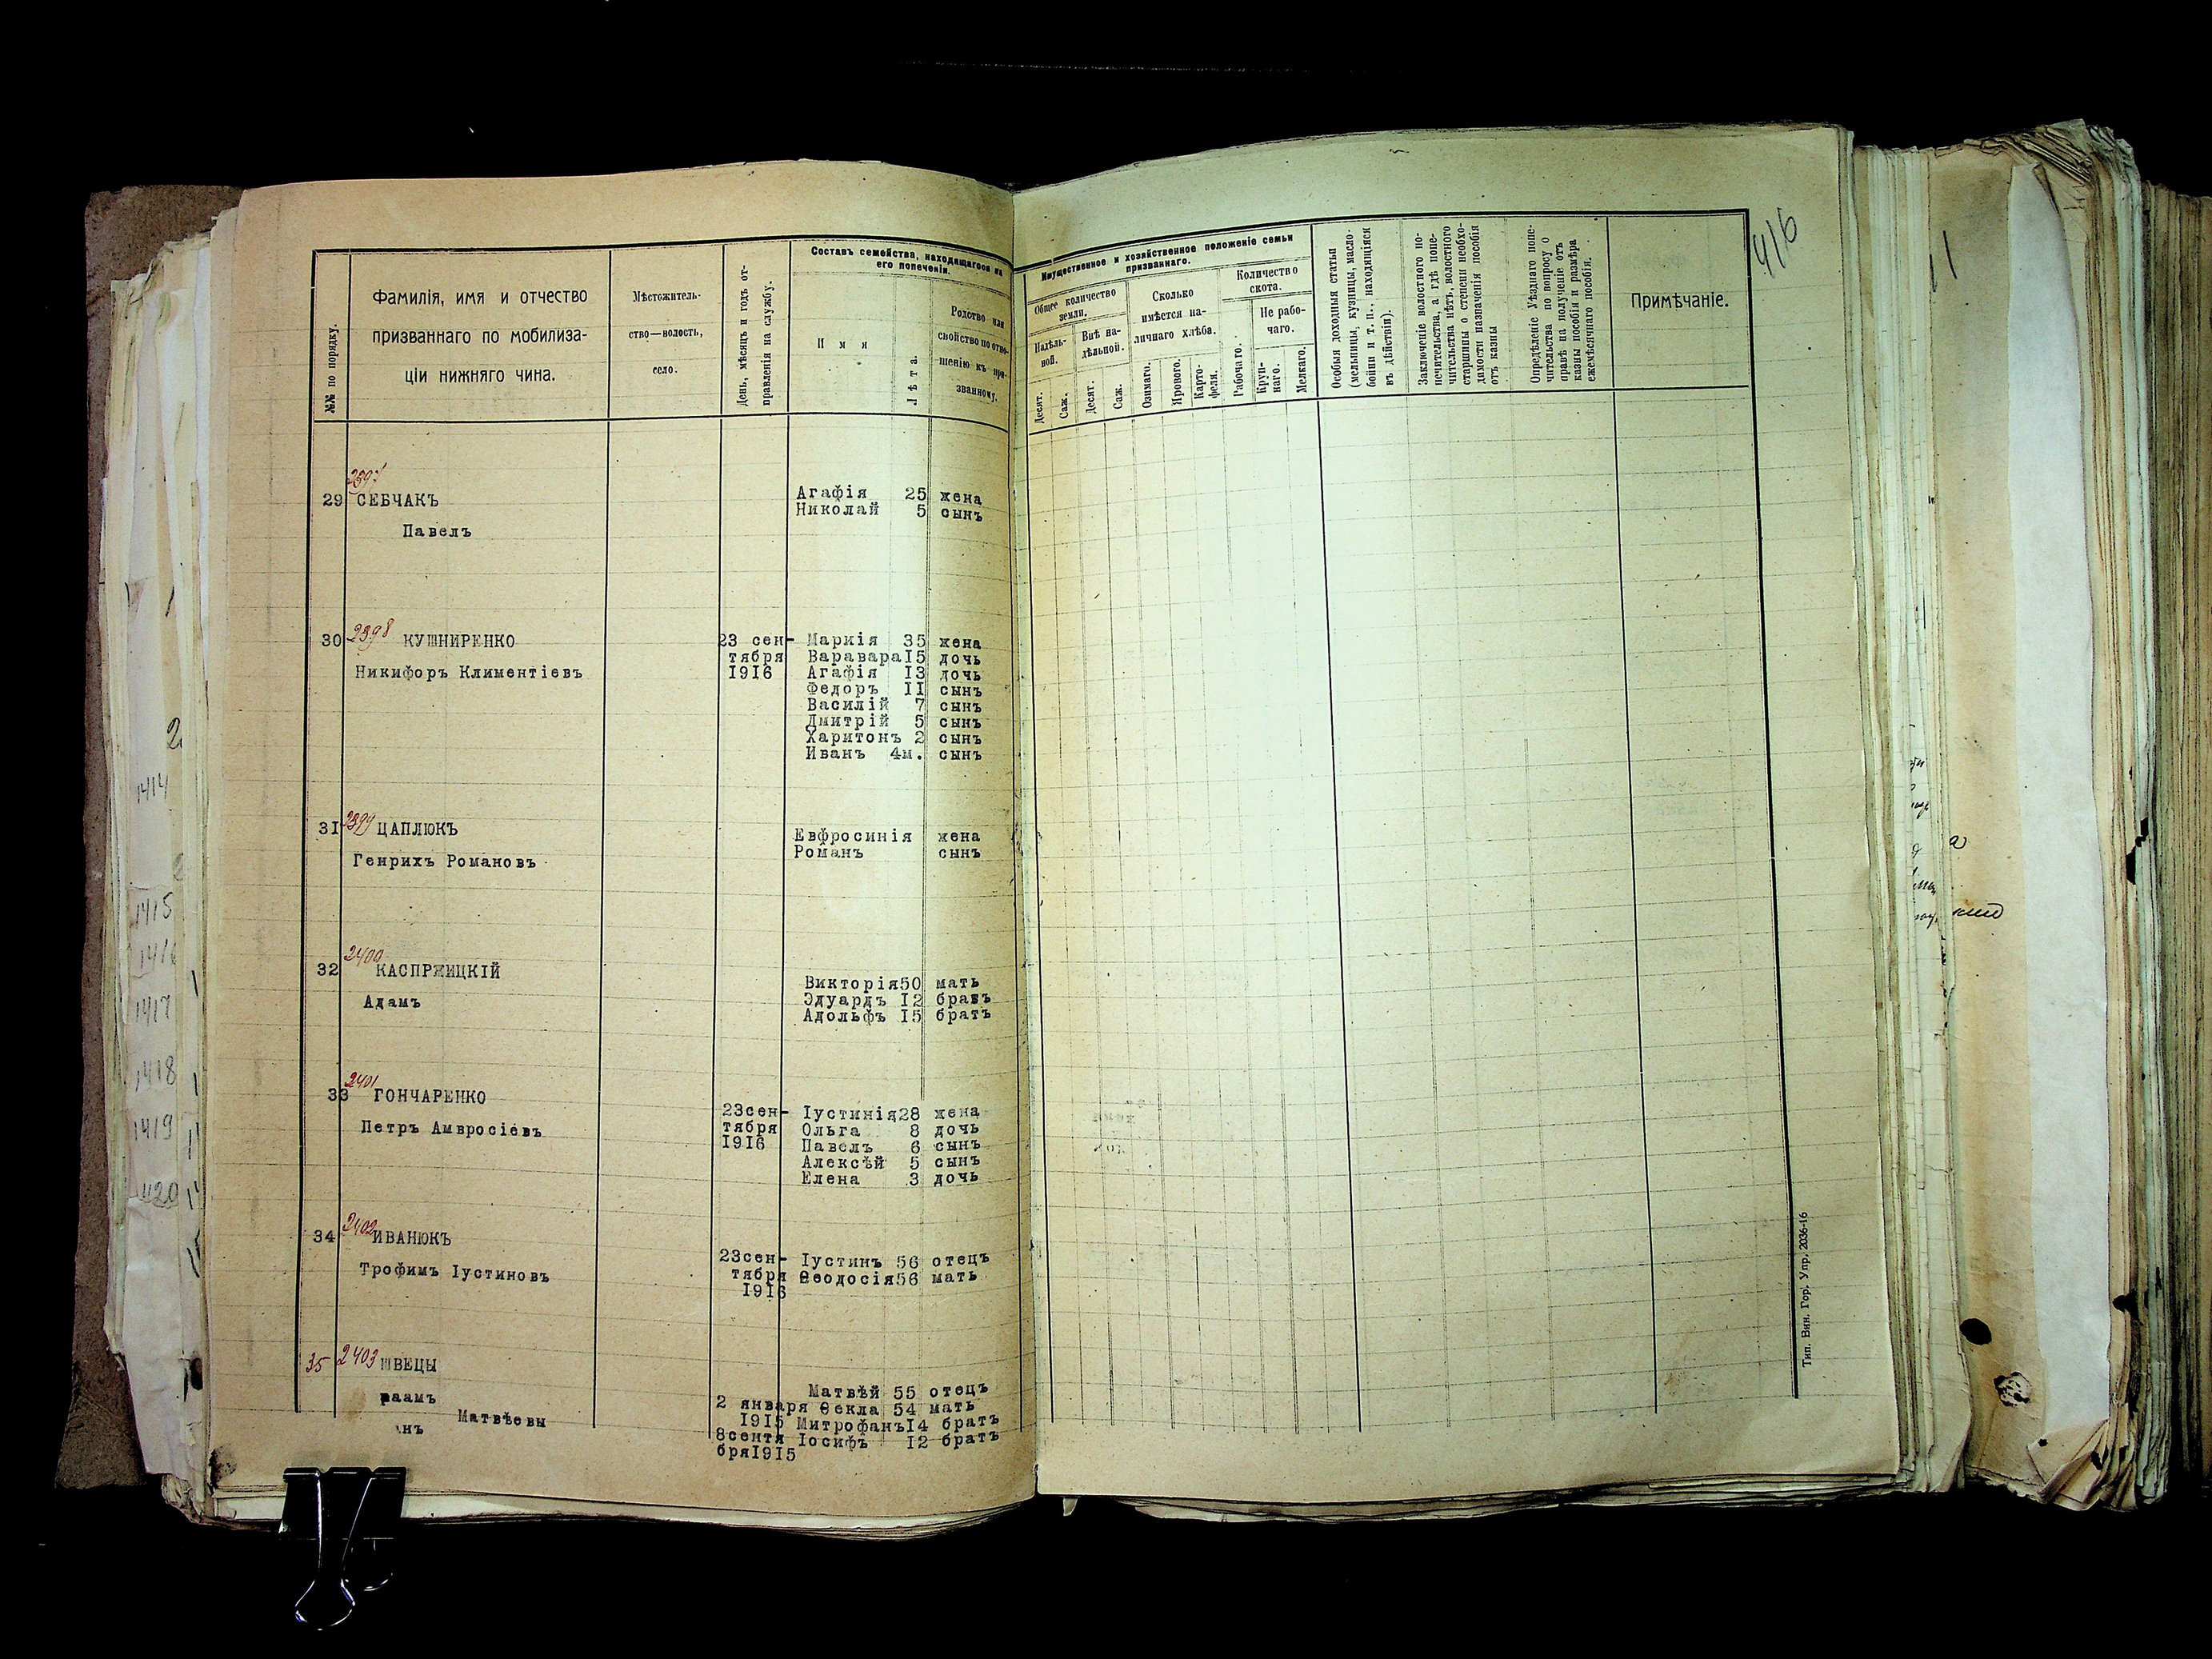 №№ по порядку.
Фамилія, имя и отчество
призваннаго по мобилиза-
ціи нижняго чина.
Мѣстожитель-
ство—волость,
село.
День, мѣсяцъ и годъ от-
правленія на службу.
Составъ семейства, находящагося на
его попеченіи.
Имя
Лѣта.
Родство или
свойство по отно-
шенію къ при-
званному.
Имущественное и хозяйственное положеніе семьи
призваннаго.
Общее количество
земли.
Надѣль-
ной.
Внѣ на-
дѣльной.
Десят.
Саж.
Десят.
Саж.
Сколько
имѣется на-
личнаго хлѣба.
Озимаго.
Ярового.
Карто-
феля.
Количество
скота.
Рабочаго.
Не рабо-
чаго.
Круп-
наго.
Мелкаго.
Особыя доходныя статьи
(мельницы, кузницы, масло-
бойни и т. п., находящіяся
въ дѣйствіи).
Заключеніе волостного по-
печительства, а гдѣ попе-
чительства нѣтъ, волостного
старшины о степени необхо-
димости назначенія пособія
отъ казны
Опредѣленіе Уѣзднаго попе-
чительства по вопросу о
правѣ на полученіе отъ
казны пособія и размѣра
ежемѣсячнаго пособія.
Примѣчаніе.
416
2397
29 СЕБЧАКЪ
Павелъ
Агафія 25 жена
Николай 5 сынъ
30 2398 КУШНИРЕНКО
Никифоръ Климентіевъ
23 сен-
тября
1916
Маркія 35 жена
Варавара 15 дочь
Агафія 13 дочь
Федоръ 11 сынъ
Василій 7 сынъ
Дмитрій 5 сынъ
Харитонъ 2 сынъ
Иванъ 4м. сынъ
31 2399 ЦАПЛЮКЪ
Генрихъ Романовъ
Евфросинія жена
Романъ сынъ
2400
32 КАСПРЖИЦКІЙ
Адамъ
Викторія 50 мать
Эдуардъ 12 братъ
Адольфъ 15 братъ
2401
33 ГОНЧАРЕНКО
Петръ Амвросіевъ
23сен-
тября
1916
Іустинія 28 жена
Ольга 8 дочь
Павелъ 6 сынъ
Алексѣй 5 сынъ
Елена 3 дочь
2402
34 ИВАНЮКЪ
Трофимъ Іустиновъ
23сен-
тября
1916
Іустинъ 56 отецъ
Ѳеодосія 56 мать
35 2403 ШВЕЦЫ
раамъ
Матвѣевы
нъ
2 января
1915
8сентя
бря1915
Матвѣй 55 отецъ
Ѳекла 54 мать
Митрофанъ 14 братъ
Іосифъ 12 братъ
Тип. Вин. Гор. Упр. 2036-16
1414
1415
1416
1417
1418
1419
1420